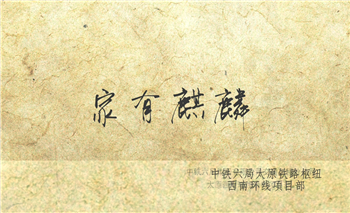 家有麒麟
中铁六局太原铁路枢纽
西南环线项目部